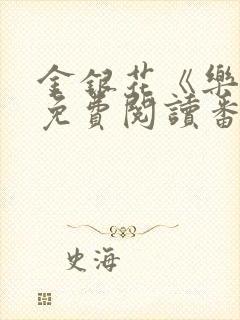 金銀花《樂
免費閱讀番
史海